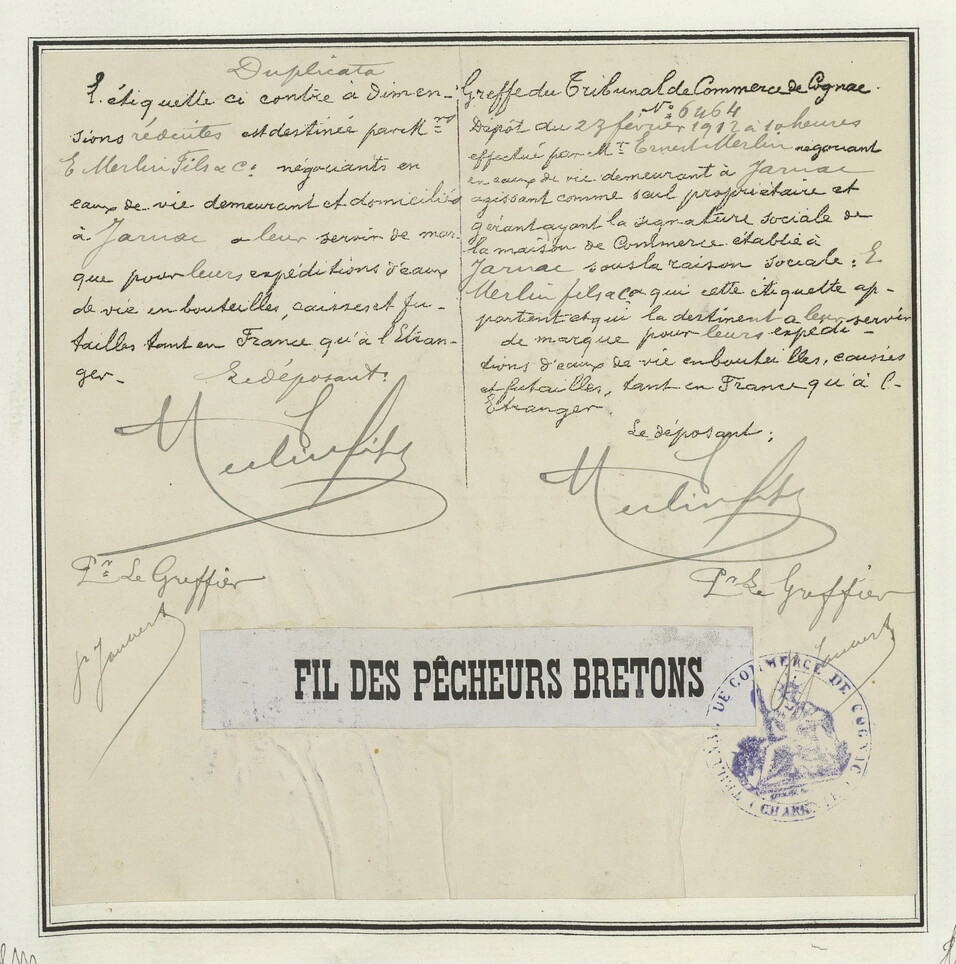 Duplicata
L'étiquette ci contre a Dimen-
sions réduites est destinée par Mrs
E Merlin Fils & Co négociants en
eaux de vie demeurant et domiciliés
à Jarnac a leur servir de mar-
que pour leurs expéditions d'eaux
de vie en bouteilles, caisses et fu-
tailles tant en France qu'à l'Etran-
ger.
Le déposant:
Merlin fils
Pr Le Greffier
Greffe du Tribunal de Commerce de Cognac.
No 6464
Dépôt du 23 février 1912 à 10 heures
effectué par Mr Ernest Merlin négociant
en eaux de vie demeurant à Jarnac
agissant comme seul propriétaire et
gérant ayant la signature sociale de
la maison de Commerce établie à
Jarnac sous la raison sociale: E
Merlin fils & Co à qui cette étiquette ap-
partient et qui la destinent a leur servir
de marque pour leurs expédi-
tions d'eaux de vie en bouteilles, caisses
et futailles, tant en France qu'à l'-
Etranger.
Le déposant;
Merlin fils
Pr Le Greffier
FIL DES PÊCHEURS BRETONS
TRIBUNAL DE COMMERCE DE COGNAC
CHARENTE